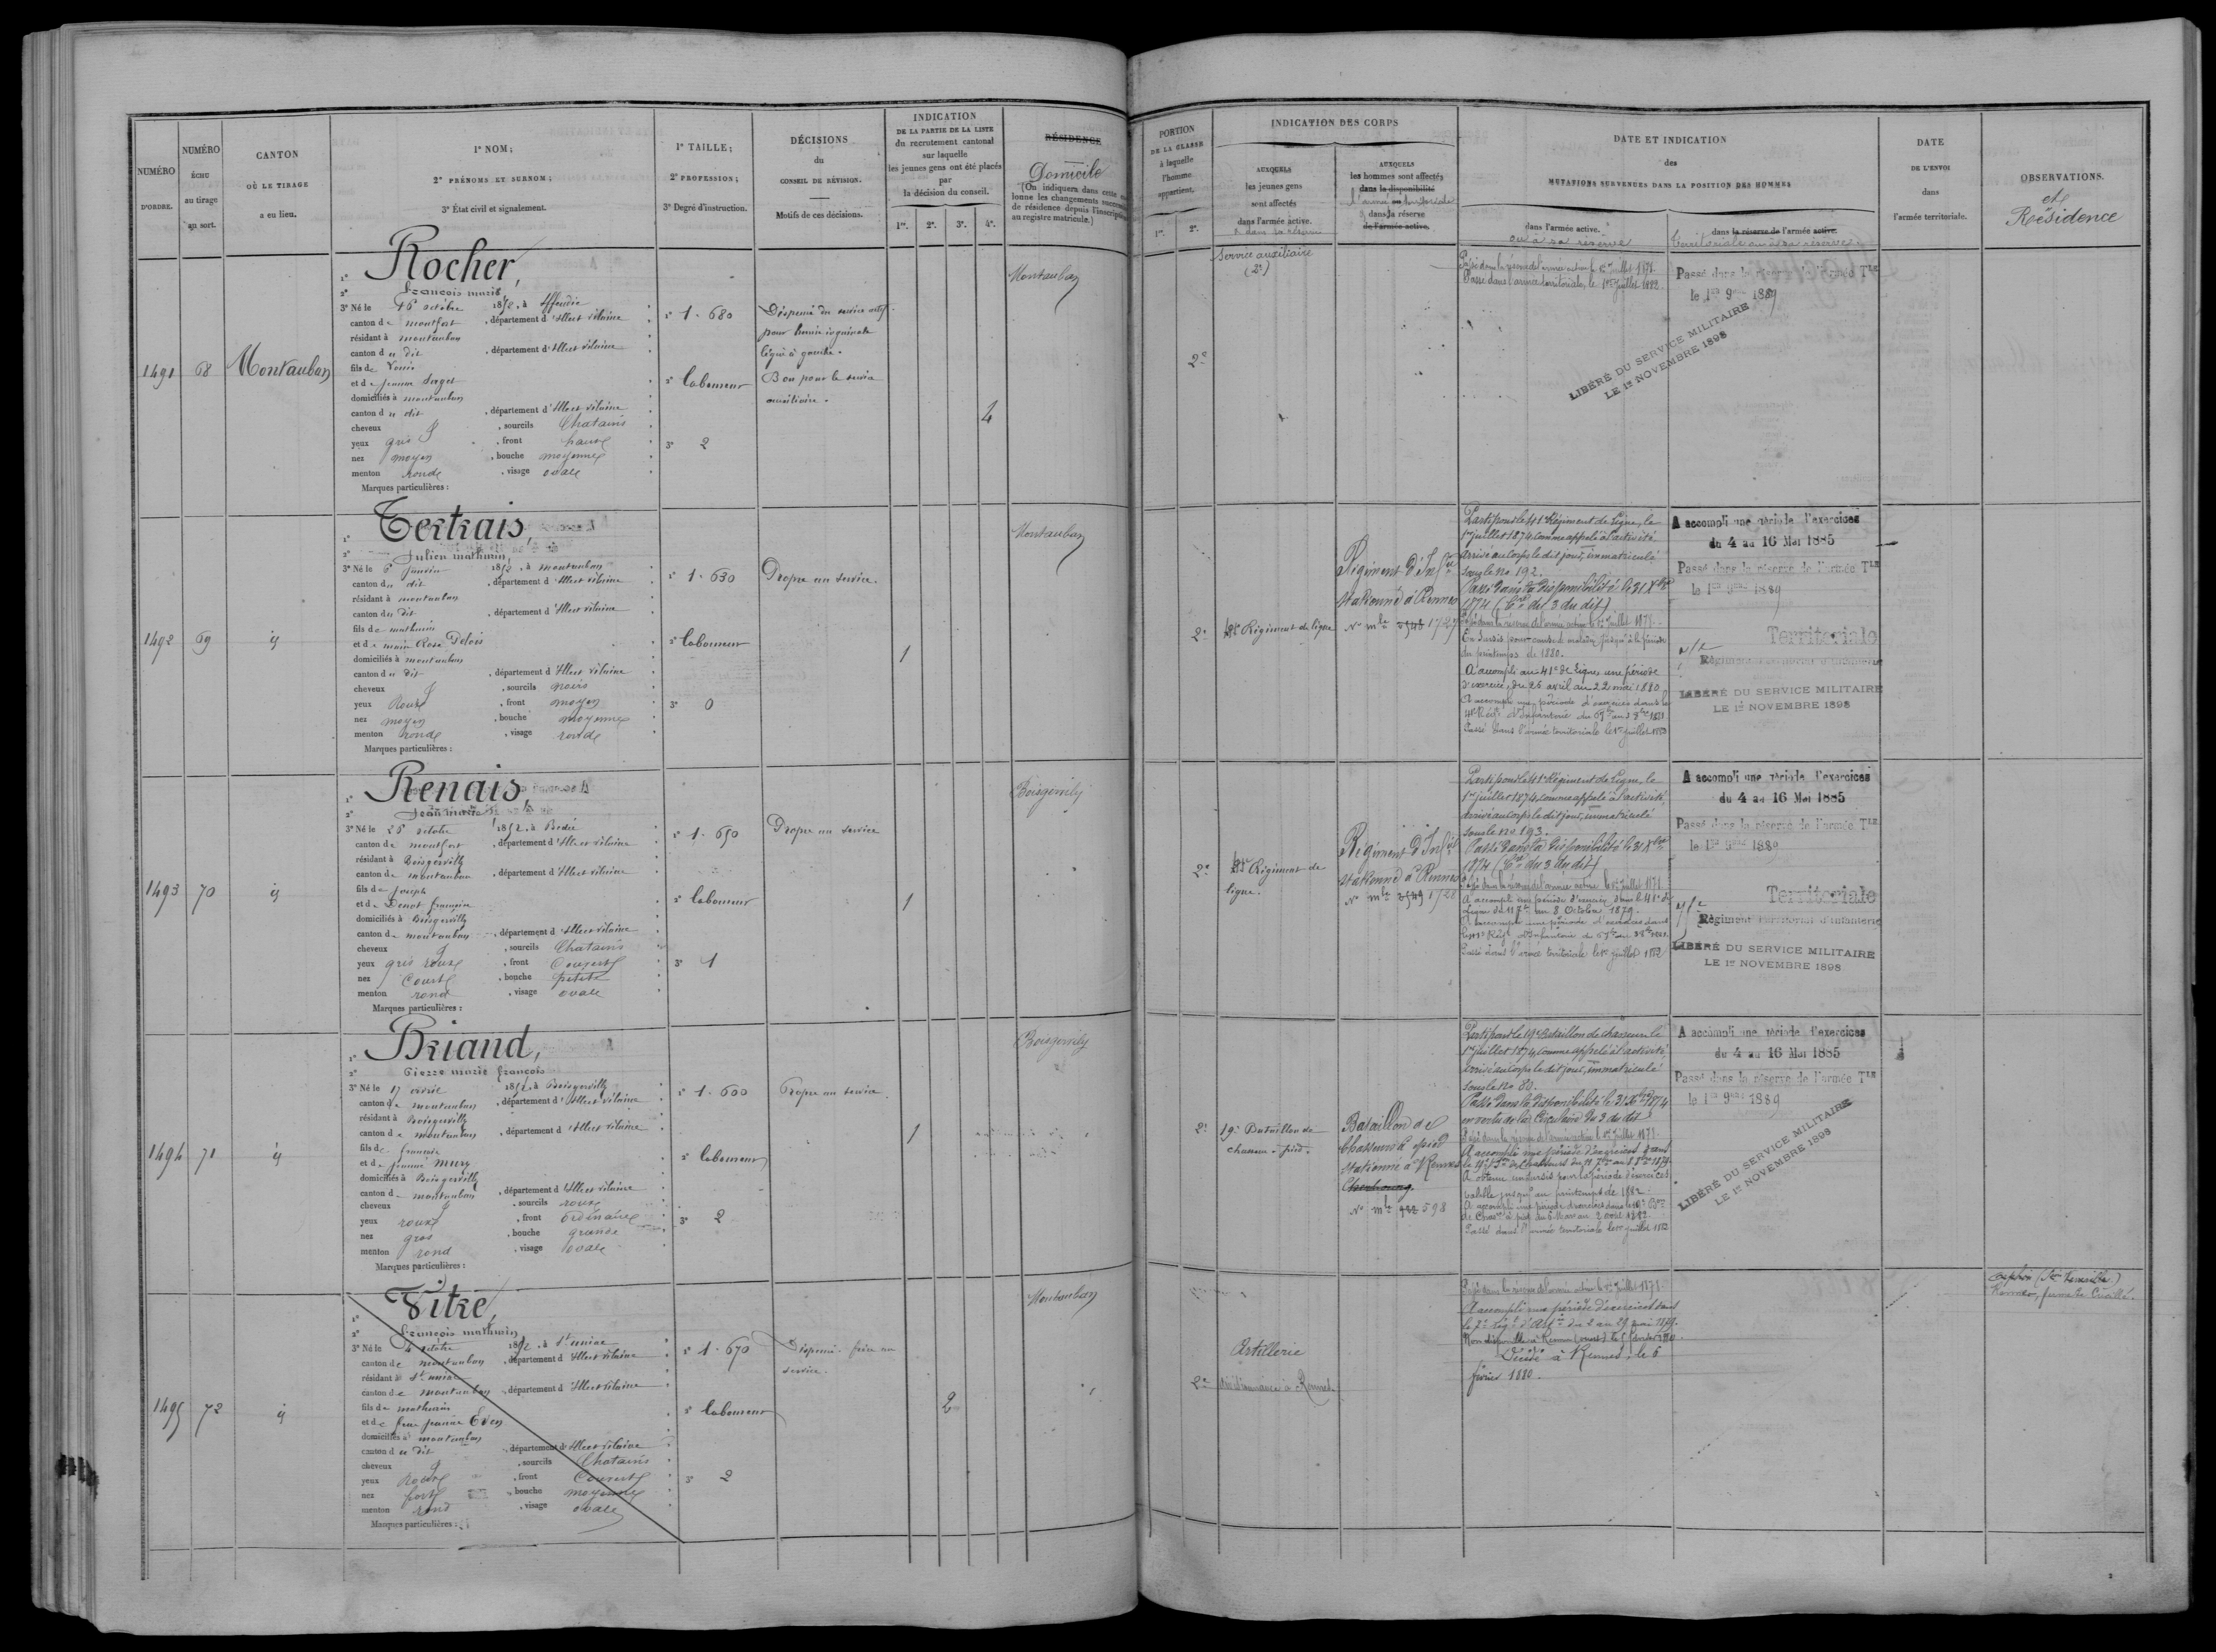 NUMÉRO
D'ORDRE.
NUMÉRO
ÉCHU
au tirage
au sort.
CANTON
OÙ LE TIRAGE
a eu lieu.
1° NOM;
2° PRÉNOMS ET SURNOM;
3° État civil et signalement.
1° TAILLE;
2° PROFESSION;
3° Degré d'instruction.
DÉCISIONS
du
CONSEIL DE RÉVISION.
Motifs de ces décisions.
INDICATION
DE LA PARTIE DE LA LISTE
du recrutement cantonal
sur laquelle
les jeunes gens ont été placés
par
la décision du conseil.
1re. 2e. 3e. 4e.
RÉSIDENCE
Domicile
(On indiquera dans cette
lonne les changements
de résidence depuis
au registre matricule.)
PORTION
DE LA CLASSE
à laquelle
l'homme
appartient.
1re. 2e.
INDICATION DES CORPS
AUXQUELS
les jeunes gens
sont affectés
dans l'armée active.
AUXQUELS
les hommes sont affectés
dans la disponibilité
dans la réserve
de l'armée active.
DATE ET INDICATION
des
MUTATIONS SURVENUES DANS LA POSITION DES HOMMES
dans l'armée active.
ou à sa réserve
dans la réserve de l'armée active.
territoriale ou à sa réserve
DATE
DE L'ENVOI
dans
l'armée territoriale.
OBSERVATIONS.
et
Résidence
1491 68 Montauban
1° Rocher,
2° François marie
3° Né le 16 octobre 1852, à Iffendic
canton de montfort, département d'Illeet vilaine
résidant à montauban
canton du dit, département d'Illeet vilaine
fils de Louis
et de jeanne
domiciliés à montauban
canton du dit, département d'Illeet vilaine
cheveux, sourcils Chatains
yeux gris, front haut
nez moyen, bouche moyenne
menton ronde, visage ovale
Marques particulières :
1° 1.680
2° laboureur
3° 2
Dispensé du service actif
pour hernie inguinale
à gauche.
Bon pour le service
auxiliaire.
4
Montauban
2e
Service auxiliaire
(2e)
Passé dans la réserve de l'armée active le 1er juillet
Passé dans l'armée territoriale, le 1er juillet 1882.
Passé dans la réserve de l'armée Tle
le 1er 9bre 1889
LIBÉRÉ DU SERVICE MILITAIRE
LE 1er NOVEMBRE 1898
1492 69 id
1° Tertrais,
2° Julien mathurin,
3° Né le 6 janvier 1852, à montauban
canton du dit, département d'Illeet vilaine
résidant à montauban
canton du dit, département d'Illeet vilaine
fils de mathurin
et de marie Rose
domiciliés à montauban
canton du dit, département d'Illeet vilaine
cheveux, sourcils noirs
yeux Roux, front moyen
nez moyen, bouche moyenne
menton ronde, visage ronde
Marques particulières :
1° 1.630
2° laboureur
3° 0
Propre au service.
1
Montauban
2e
Régiment de ligne
Régiment d'Infie
stationné à Rennes
No mle 1727
Parti pour le 41e Régiment de Ligne, le
1er juillet 1874 comme appelé à l'activité
arrivé au corps le dit jour, immatriculé
sous le no 192.
Passé dans la disponibilité le 31 Xbre
1874 (Cre du 3 du dit)
Passé dans la réserve de l'armée active le 1er juillet
En sursis pour cause de maladie jusqu'à la période
du printemps de 1880.
A accompli au 41e de Ligne, une période
d'exercice, du 26 avril au 22 mai 1880
A accompli une période d'exercices dans le
Passé dans l'armée territoriale le 1er juillet 1882
A accompli une période d'exercices
du 4 au 16 Mai 1885
Passé dans la réserve de l'armée Tle
le 1er 9bre 1889
Territoriale
LIBÉRÉ DU SERVICE MILITAIRE
LE 1er NOVEMBRE 1898
1493 70 id
1° Renais
2° Jean marie
3° Né le 26 octobre 1852, à Bédée
canton de montfort, département d'Illeet vilaine
résidant à Boisgervilly
canton de montauban, département d'Illeet vilaine
fils de joseph
et de Denot françoise
domiciliés à Boisgervilly
canton de montauban, département d'Illeet vilaine
cheveux, sourcils Chatains
yeux gris roux, front Couvert
nez Court, bouche petite
menton rond, visage ovale
Marques particulières :
1° 1.650
2° laboureur
3° 1
Propre au service
1
Boisgervily
2e
Régiment de
ligne.
Régiment d'Infie
stationné à Rennes
No mle 1728
Parti pour le 41e Régiment de Ligne, le
1er juillet 1874 comme appelé à l'activité,
arrivé au corps le dit jour, immatriculé
sous le no 193.
Passé dans la disponibilité le 31 Xbre
1874 (Cre du 3 du dit)
Passé dans la réserve de l'armée active le 1er juillet
A accompli une période d'exercices dans le 41e de
Ligne du 11 7bre au 8 Octobre 1879.
Passé dans l'armée territoriale le 1er juillet 1882
A accompli une période d'exercices
du 4 au 16 Mai 1885
Passé dans la réserve de l'armée Tle
le 1er 9bre 1889
Territoriale
Régiment territorial d'infanterie
LIBÉRÉ DU SERVICE MILITAIRE
LE 1er NOVEMBRE 1898
1494 71 id
1° Briand,
2° Pierre marie françois
3° Né le 17 avril 1852, à Boisgervilly
canton de montauban, département d'Illeet vilaine
résidant à Boisgervilly
canton de montauban, département d'Illeet vilaine
fils de françois
et de jeanne
domiciliés à Boisgervilly
canton de montauban, département d'Illeet vilaine
cheveux, sourcils roux
yeux roux, front ordinaire
nez gros, bouche grande
menton rond, visage ovale
Marques particulières :
1° 1.600
2° laboureur
3° 2
Propre au service.
1
Boisgervily
2e
19e Bataillon de
chasseurs à pied.
Bataillon de
Chasseurs à pied
stationné à Rennes
Cherbourg.
No mle 598
Parti pour le 19e Bataillon de chasseurs le
1er juillet 1874 comme appelé à l'activité,
arrivé au corps le dit jour, immatriculé
sous le no 80.
Passé dans la disponibilité le 31 Xbre 1874
en vertu de la Circulaire du 3 du dit
Passé dans la réserve de l'armée active le 1er juillet
A accompli une période d'exercices dans
A obtenu un sursis pour la période d'exercices
valable jusqu'au printemps de 1882.
A accompli une période d'exercices dans le 19e Bon
de Chasrs à pied du 6 Mars au 2 avril 1882.
Passé dans l'armée territoriale le 1er juillet 1882
A accompli une période d'exercices
du 4 au 16 Mai 1885
Passé dans la réserve de l'armée Tle
le 1er 9bre 1889
LIBÉRÉ DU SERVICE MILITAIRE
LE 1er NOVEMBRE 1898
1495 72 id
1° Vitre,
2° François mathurin
3° Né le 4 octobre 1852, à St uniac
canton de montauban, département d'Illeet vilaine
résidant à St uniac
canton de montauban, département d'Illeet vilaine
fils de mathurin
et de feue jeanne Even
domiciliés à montauban
canton du dit, département d'Illeet vilaine
cheveux, sourcils Chatains
yeux Roux, front Couvert
nez fort, bouche moyenne
menton rond, visage ovale
Marques particulières :
1° 1.670
2° laboureur
3° 2
Dispensé frère au
service.
2
Montauban
2e
Artillerie
à Rennes
Passé dans la réserve de l'armée active le 1er juillet
A accompli une période d'exercices dans
le 7e Régt d'Artie du 2 au 29 mai 1879.
Décédé à Rennes, le 6
février 1880.